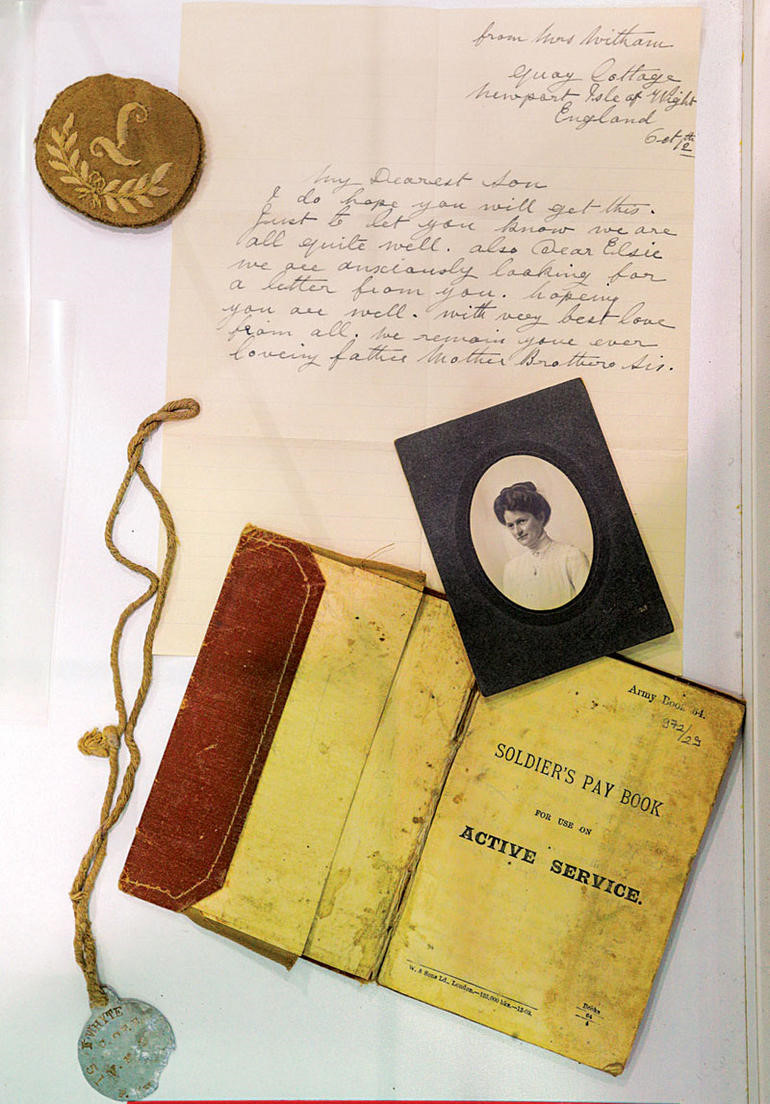 from Mrs Witham
Quay Cottage
Newport Isle of Wight
England
Oct 12th
My Dearest Son
I do hope you will get this.
Just to let you know we are
all quite well. also Dear Elsie
we are anxiously looking for
a letter from you. hoping
you are well. with very best love
from all. we remain your ever
loveing father Mother Brothers Sis.
L
Army Book 64.
972/29
SOLDIER'S PAY BOOK
FOR USE ON
ACTIVE SERVICE.
Books
64
4
WHYTE